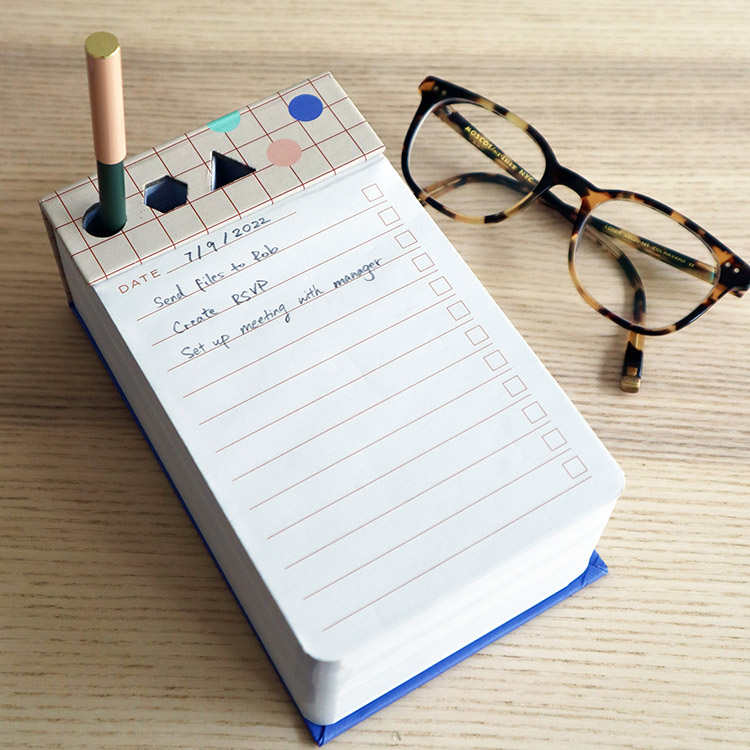 DATE 7/9/2022
Send files to Rob
Create RSVP
Set up meeting with manager